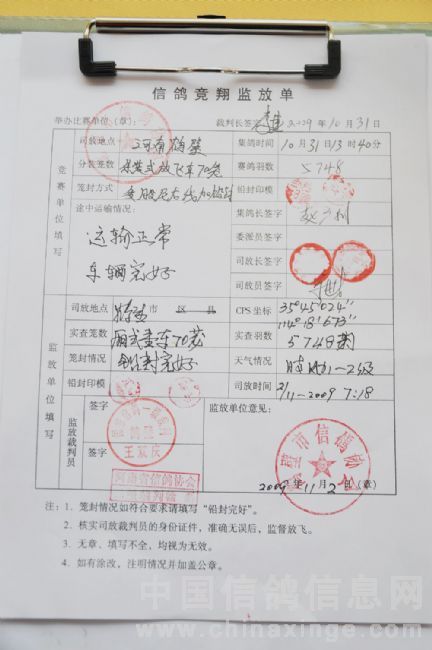 信鸽竞翔监放单
举办比赛单位(章): 裁判长签字 2009 年 10 月 31 日
竞赛单位填写
司放地点 河南鹤壁 集鸽时间 10月31日13时40分
分装笼数 放飞车70笼 赛鸽羽数 5748
笼封方式 铅封印模
途中运输情况: 集鸽长签字
运输正常 委派员签字
车辆完好 司放长签字
司放员签字
监放单位填写
司放地点 鹤壁 市 区 县 GPS坐标 35°45'024"
114°18'673"
实查笼数 70笼 实查羽数 5748羽
笼封情况 铅封完好 天气情况 晴 1-2级
铅封印模 司放时间 2/11-2009 7:18
监放裁判员 签字 监放单位意见:
王双庆
签字
河南省信鸽协会
市信鸽协会
2009年11月2日(章)
注: 1. 笼封情况如符合要求请填写“铅封完好”。
2. 核实司放裁判员的身份证件,准确无误后,监督放飞。
3. 无章、填写不全,均视为无效。
4. 如有涂改,注明情况并加盖公章。
中国信鸽信息网
www.chinaxinge.com